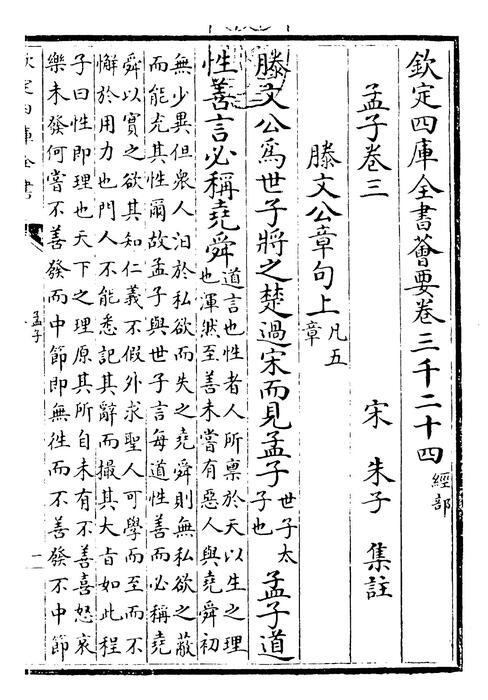 欽定四庫全書薈要卷三千二十四 經部
孟子卷三 宋 朱子 集註
滕文公章句上 凡五章
滕文公爲世子將之楚過宋而見孟子 世子太子也 孟子道
性善言必稱堯舜 道言也性者人所禀於天以生之理
也渾然至善未嘗有惡人與堯舜初
無少異但衆人汩於私欲而失之堯舜則無私欲之蔽
而能充其性爾故孟子與世子言每道性善而必稱堯
舜以實之欲其知仁義不假外求聖人可學而至而不
懈於用力也門人不能悉記其辭而撮其大旨如此程
子曰性即理也天下之理原其所自未有不善喜怒哀
樂未發何嘗不善發而中節即無徃而不善發不中節
欽定四庫全書 孟子 一